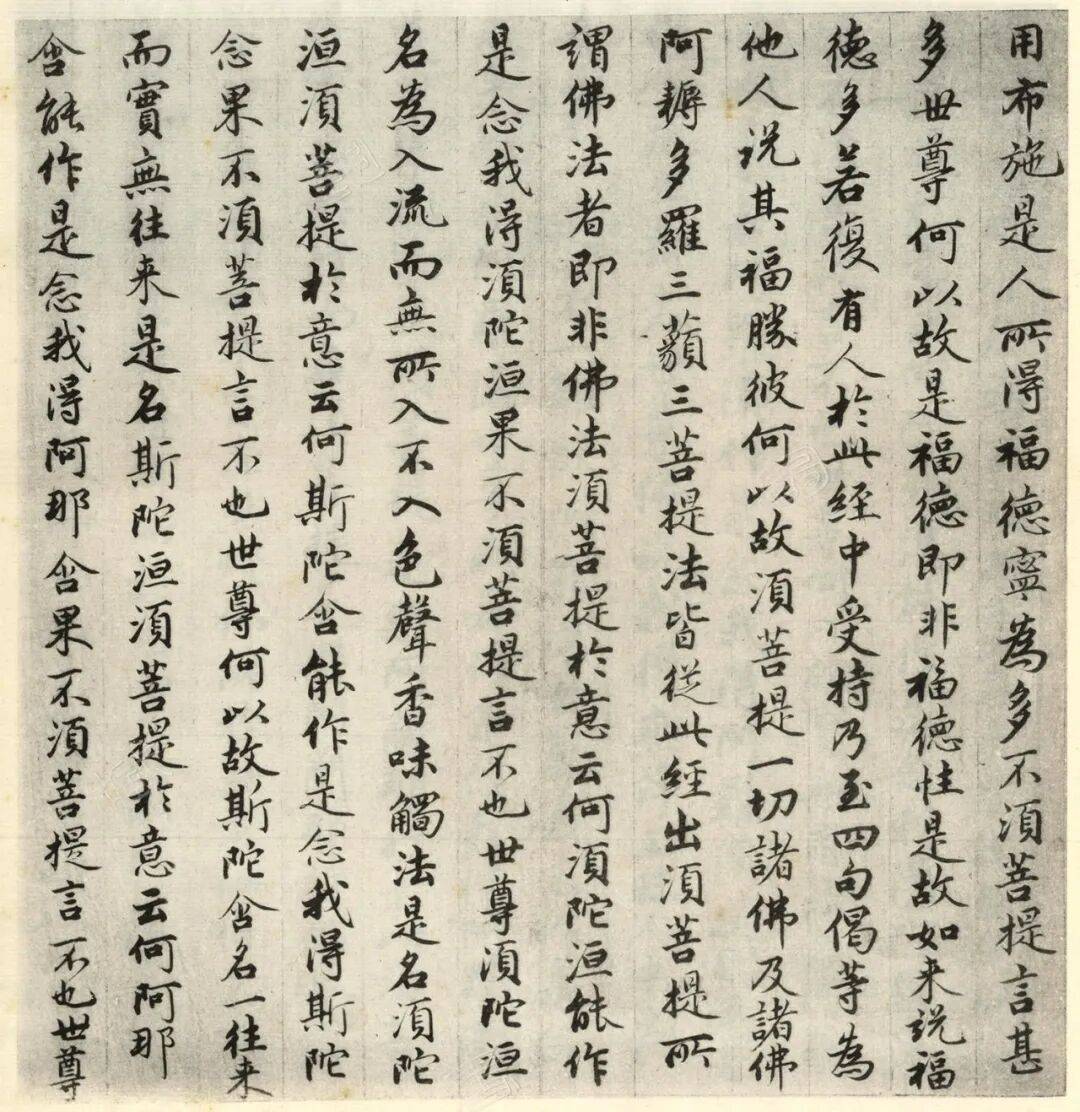 用布施是人所得福德寧為多不須菩提言甚
多世尊何以故是福德即非福德性是故如来説福
德多若復有人於此経中受持乃至四句偈等為
他人説其福勝彼何以故須菩提一切諸佛及諸佛
阿耨多羅三藐三菩提法皆從此經出須菩提所
謂佛法者即非佛法須菩提於意云何須陀洹能作
是念我得須陀洹果不須菩提言不也世尊須陀洹
名為入流而無所入不入色聲香味觸法是名須陀
洹須菩提於意云何斯陀含能作是念我得斯陀
念果不須菩提言不也世尊何以故斯陀含名一往来
而實無往来是名斯陀洹須菩提於意云何阿那
含能作是念我得阿那含果不須菩提言不也世尊